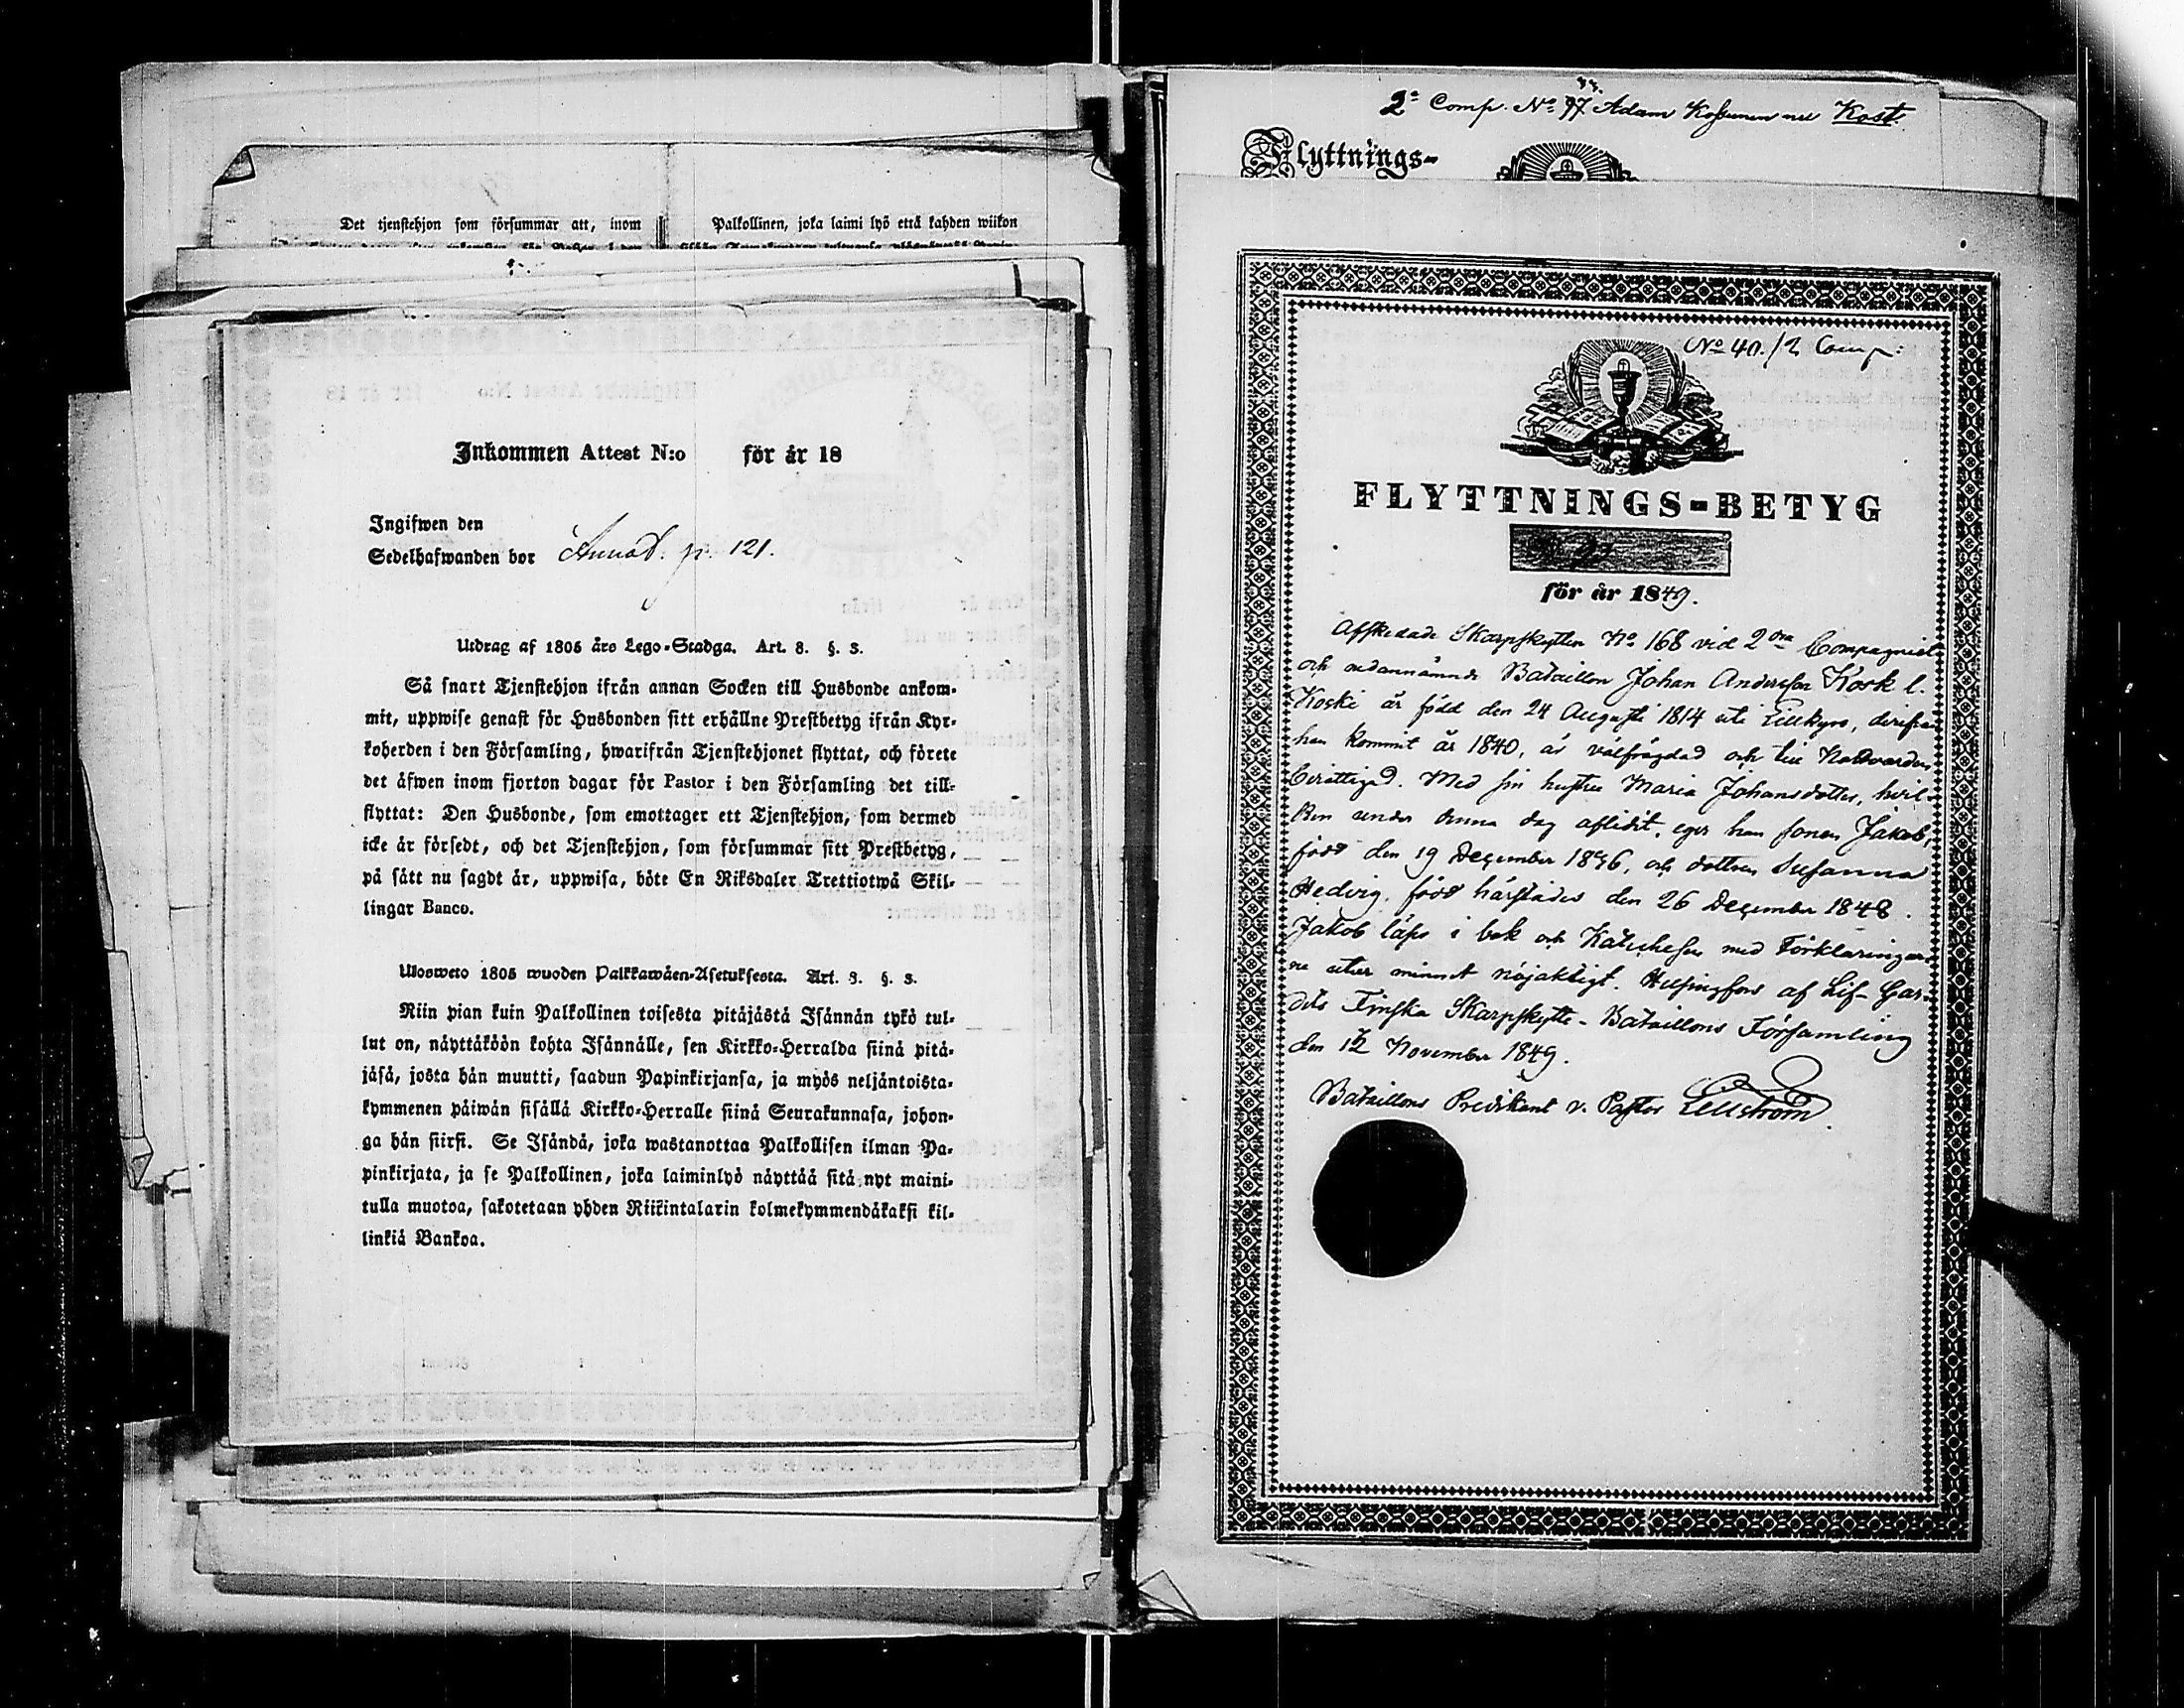 Det tjenstehjon som försummar att, inom
Palkollinen, joka laimi lyö että kahden wiikon
Inkommen Attest N:o för år 18
Ingifwen den
Sedelhafwanden bor Annat. p. 121.
Utdrag af 1805 års Lego-Stadga. Art. 8. §. 3.
Så snart Tjenstehjon ifrån annan Socken till Husbonde ankom-
mit, uppwise genast för Husbonden sitt erhållne Prestbetyg ifrån Kyr-
koherden i den Församling, hwarifrån Tjenstehjonet flyttat, och förete
det äfwen inom fjorton dagar för Pastor i den Församling det till-
flyttat: Den Husbonde, som emottager ett Tjenstehjon, som dermed
icke är försedt, och det Tjenstehjon, som försummar sitt Prestbetyg,
på sätt nu sagdt är, uppwisa, böte En Riksdaler Trettiotwå Skil-
lingar Banco.
Ulosweto 1805 wuoden Palkkawäen-Asetuksesta. Art. 8. §. 3.
Niin pian kuin Palkollinen toisesta pitäjästä Isännän tykö tul-
lut on, näyttäköön kohta Isännälle, sen Kirkko-Herralda siinä pitä-
jäsä, josta hän muutti, saadun Papinkirjansa, ja myös neljäntoista-
kymmenen päiwän sisällä Kirkko-Herralle siinä Seurakunnasa, johon-
ga hän siirsi. Se Isändä, joka wastanottaa Palkollisen ilman Pa-
pinkirjata, ja se Palkollinen, joka laiminlyö näyttää sitä nyt maini-
tulla muotoa, sakotetaan yhden Riikintalarin kolmekymmendäkaksi kil-
linkiä Bankoa.
2a Comp. No 97. Adam Kossunen nu Kost.
Flyttnings-
No 40./2 Comp:
FLYTTNINGS-BETYG
för år 1849.
Afskedade Skarpskytten No 168 vid 2dra Compagniet
och nedannämnde Bataillon Johan Andersson Kosk l.
Koski är född den 24 Augusti 1814 uti Lillkyro, derifrån
han kommit år 1840, är välfrägdad och till Nattvarden
berättigad. Med sin hustru Maria Johansdotter, hvil-
ken under denna dag aflidit, eger han sonen Jakob,
född den 19 December 1836, och dottren Susanna
Hedvig, född härstädes den 26 December 1848.
Jakob läser i bok och Katechesen med Förklaringar-
ne utur minnet nöjaktigt. Helsingfors af Lif-Gar-
dets Finska Skarpskytte-Bataillons Församling
den 12 November 1849.
Bataillons Predikant v. Pastor Lillström.